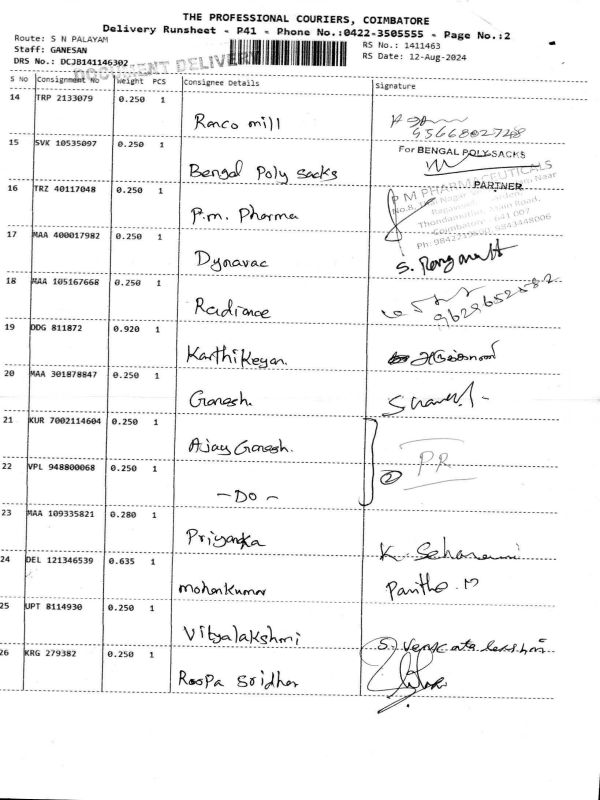 THE PROFESSIONAL COURIERS, COIMBATORE
Delivery Runsheet - P41 - Phone No.:0422-3505555 - Page No.:2
Route: S N PALAYAM
Staff: GANESAN
DRS No.: DCJB141146302
RS No.: 1411463
RS Date: 12-Aug-2024
DOCUMENT DELIVERY
S No Consignment No Weight PCS Consignee Details Signature
14 TRP 2133079 0.250 1
Ranco mill
9566802728
15 SVK 10535097 0.250 1
For BENGAL POLY SACKS
Bengal Poly sacks
PARTNER
16 TRZ 40117048 0.250 1
P.m. Pharma
P M PHARMACEUTICALS
Coimbatore - 641 007
17 MAA 400017982 0.250 1
Dynavac
18 MAA 105167668 0.250 1
Radiance
9629652582
19 DDG 811872 0.920 1
Karthikeyan.
20 MAA 301878847 0.250 1
Ganesh.
21 KUR 7002114604 0.250 1
Ajay Ganesh.
PR
22 VPL 948800068 0.250 1
2
- DO -
23 MAA 109335821 0.280 1
Priyanka
24 DEL 121346539 0.635 1
mohankumar
25 UPT 8114930 0.250 1
Vityalakshmi
26 KRG 279382 0.250 1
Roopa Sridher